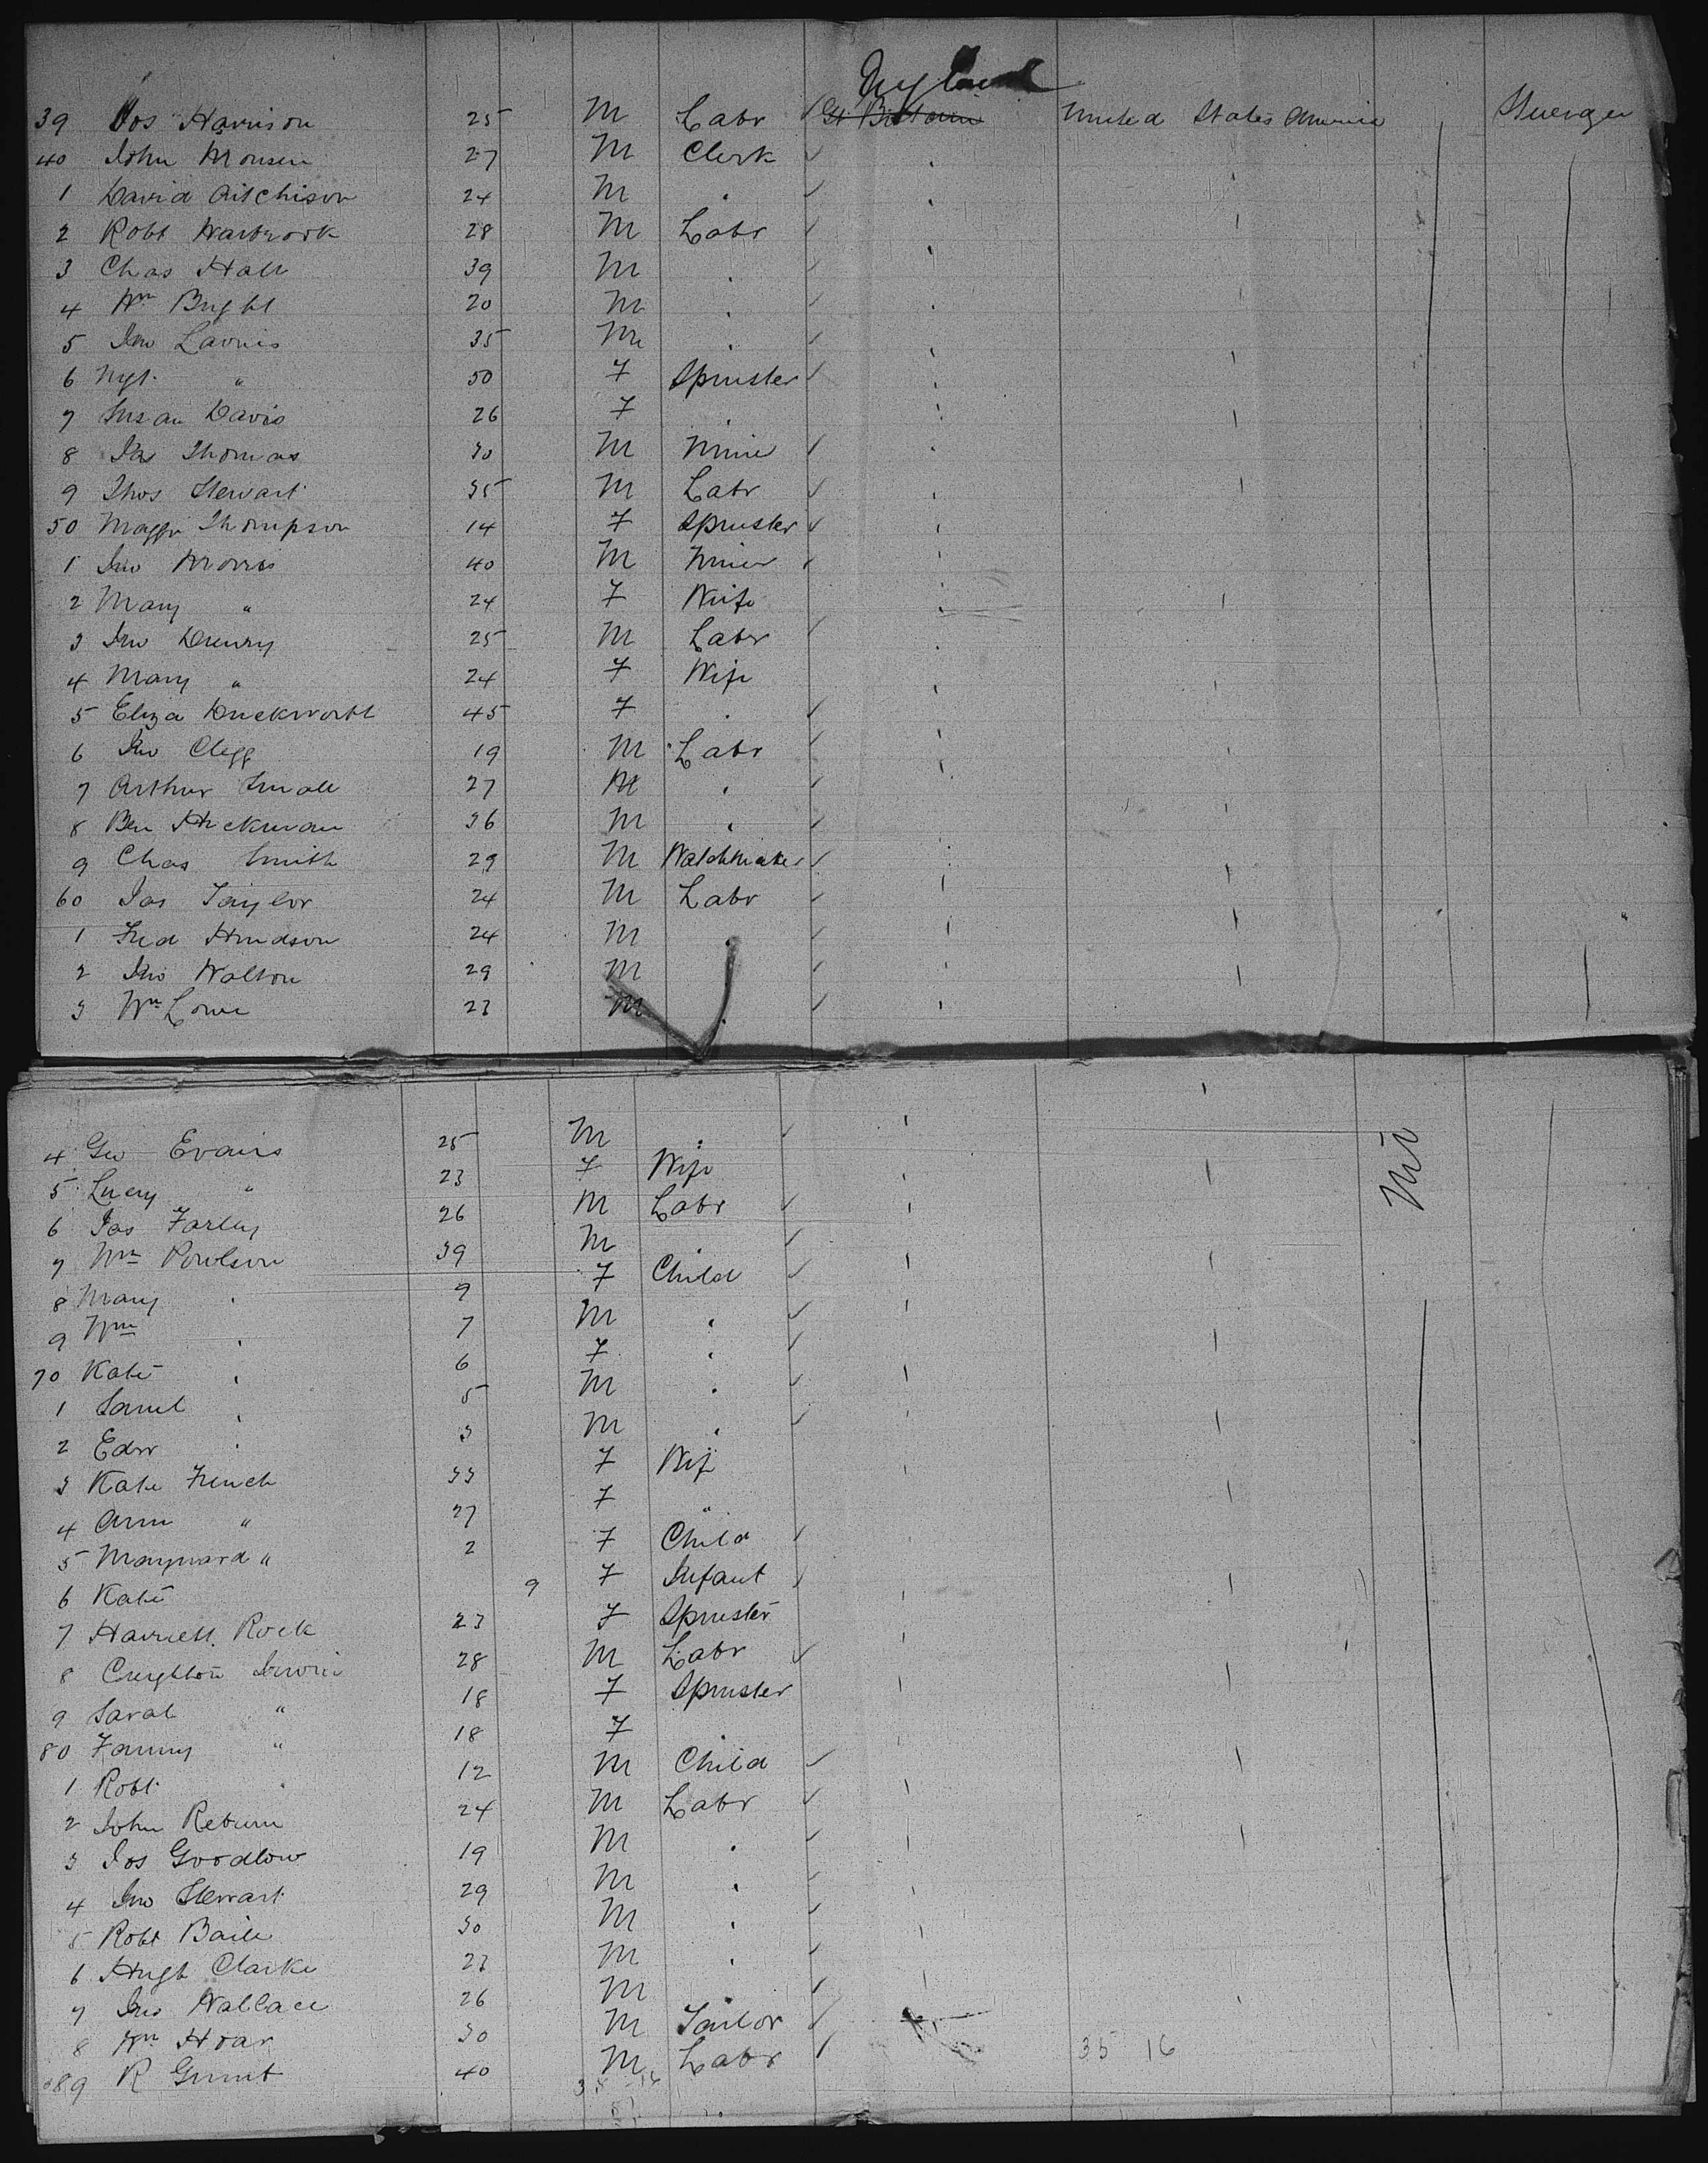 England
39 Jos Harrison 25 M Labr ✓ Gt Britain United States America Steerage
40 John Monsen 27 M Clerk ✓
1 David Aitchison 24 M " ✓
2 Robt Warbrook 28 M Labr ✓
3 Chas Hall 39 M " ✓
4 Wm Bright 20 M " ✓
5 Jno Lavris 35 M " ✓
6 Mgt " 50 F Spinster ✓
7 Susan Davis 26 F "
8 Jas Thomas 30 M Miner ✓
9 Thos Stewart 35 M Labr ✓
50 Maggie Thompson 14 F Spinster ✓
1 Jno Morris 40 M Miner ✓
2 Mary " 24 F Wife
3 Jno Drewry 25 M Labr ✓
4 Mary " 24 F Wife
5 Eliza Duckworth 45 F " ✓
6 Jno Clegg 19 M Labr ✓
7 Arthur Small 27 M " ✓
8 Ben Hickman 36 M " ✓
9 Chas Smith 29 M Watchmaker ✓
60 Jas Taylor 24 M Labr ✓
1 Fred Hudson 24 M " ✓
2 Jno Walton 29 M " ✓
3 Wm Lowe 23 M " ✓
4 Geo Evans 25 M " ✓
5 Lucy " 23 F Wife
6 Jas Farley 26 M Labr ✓
7 Wm Powlson 39 M " ✓
8 Mary " 9 F Child ✓
9 Wm " 7 M " ✓
70 Kate " 6 F " ✓
1 Saml " 5 M " ✓
2 Edw " 3 M " ✓
3 Kate French 33 F Wife
4 Ann " 27 F "
5 Maynard " 2 F Child ✓
6 Kate 9 F Infant ✓
7 Harriett Rock 23 F Spinster
8 Creighton Irwin 28 M Labr ✓
9 Sarah " 18 F Spinster
80 Fanny " 18 F "
1 Robt " 12 M Child ✓
2 John Reburn 24 M Labr ✓
3 Jos Goodlow 19 M " ✓
4 Jno Stewart 29 M " ✓
5 Robt Baile 30 M " ✓
6 Hugh Clarke 23 M " ✓
7 Jno Wallace 26 M ✓
8 Wm Hoar 30 M Tailor ✓
89 R Grunt 40 M Labr ✓
35 16